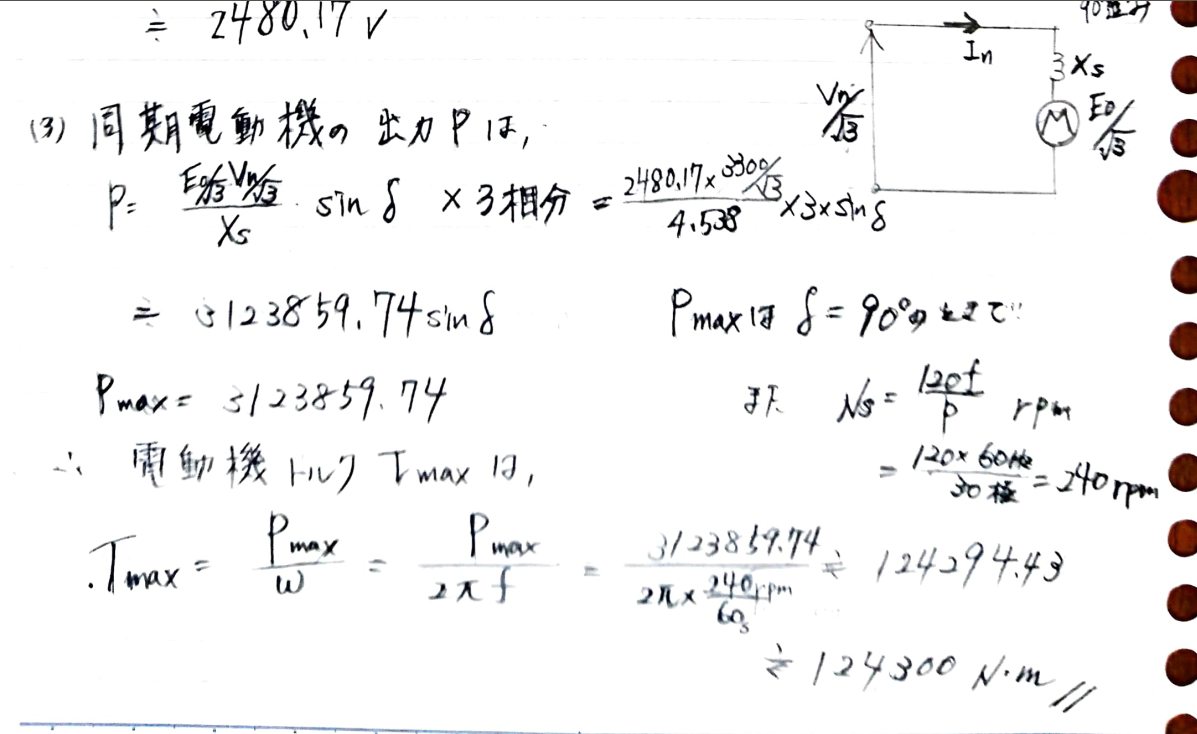 ≒ 2480.17 V
In
Xs
Vn/√3
E0/√3
(3) 同期電動機の出力Pは,
P= E0/√3 Vn/√3 / Xs · sin δ ×3相分 = 2480.17×3300/√3 / 4.538 ×3×sin δ
≒ 3123859.74 sin δ
Pmaxは δ=90°のときで
Pmax= 3123859.74
また Ns= 120f / P rpm
= 120×60Hz / 30極 = 240rpm
∴ 電動機トルク Tmax は,
.Tmax = Pmax / ω = Pmax / 2π f = 3123859.74 / 2π× 240rpm / 60s ≒ 124294.43
≒ 124300 N·m //